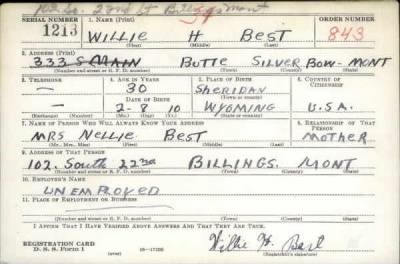 22nd St Billings Mont
SERIAL NUMBER 1. NAME (Print) ORDER NUMBER
1213 WILLIE H BEST 843
(First) (Middle) (Last)
2. ADDRESS (Print)
333 S MAIN BUTTE SILVER BOW- MONT
(Number and street or R. F. D. number) (Town) (County) (State)
3. TELEPHONE 4. AGE IN YEARS 5. PLACE OF BIRTH 6. COUNTRY OF CITIZENSHIP
— 30 SHERIDAN
(Town or county)
DATE OF BIRTH
— 2-8-10 WYOMING U.S.A.
(Exchange) (Number) (Mo.) (Day) (Yr.) (State or country)
7. NAME OF PERSON WHO WILL ALWAYS KNOW YOUR ADDRESS 8. RELATIONSHIP OF THAT PERSON
MRS NELLIE BEST MOTHER
(Mr., Mrs., Miss) (First) (Middle) (Last)
9. ADDRESS OF THAT PERSON
102. SOUTH 22nd BILLINGS. MONT
(Number and street or R. F. D. number) (Town) (County) (State)
10. EMPLOYER'S NAME
UNEMPLOYED
11. PLACE OF EMPLOYMENT OR BUSINESS
(Number and street or R. F. D. number) (Town) (County) (State)
I AFFIRM THAT I HAVE VERIFIED ABOVE ANSWERS AND THAT THEY ARE TRUE.
REGISTRATION CARD
D. S. S. Form 1 (over) Willie H. Best
(Registrant's signature)